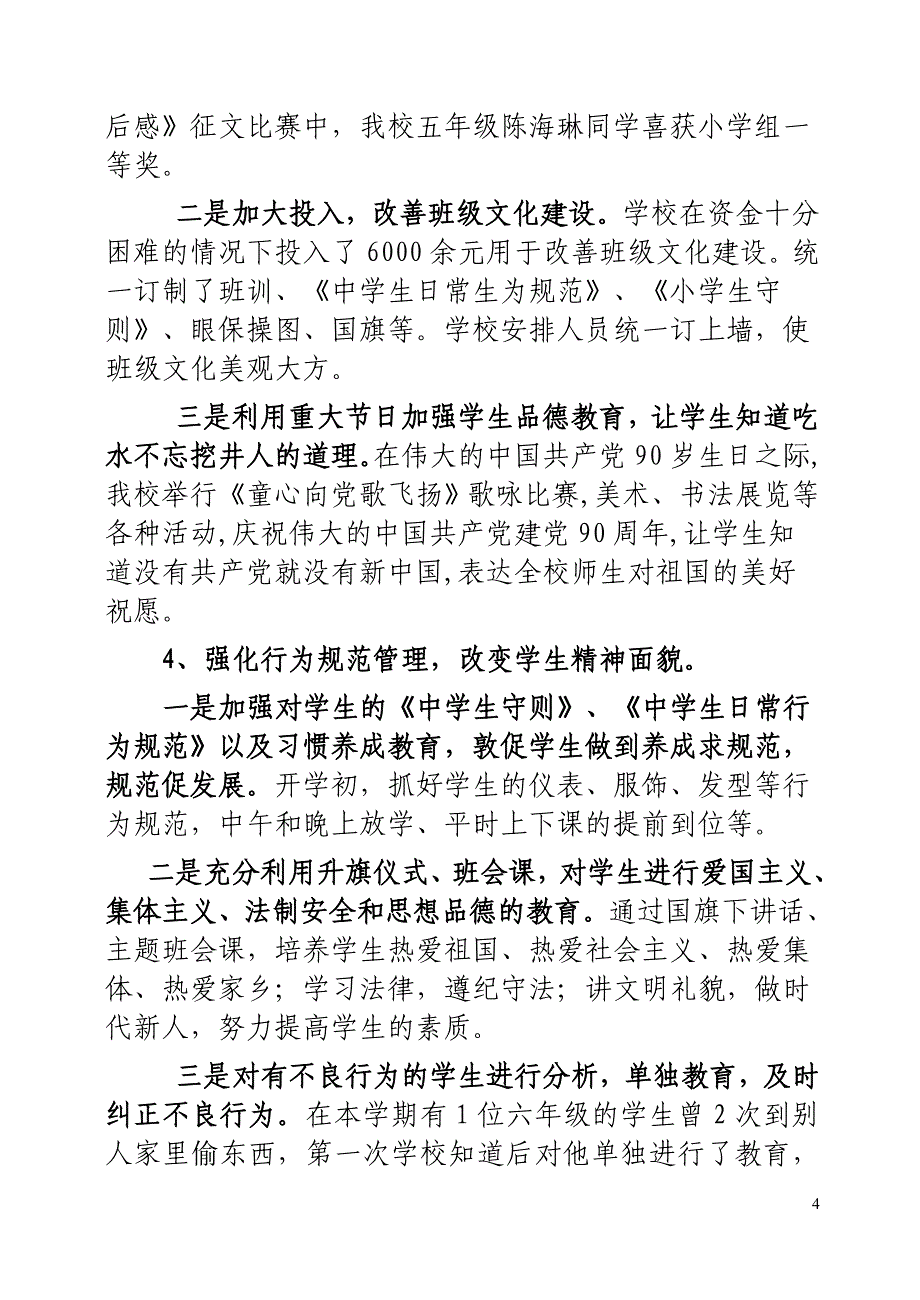 后感》征文比赛中，我校五年级陈海琳同学喜获小学组一
等奖。
二是加大投入，改善班级文化建设。学校在资金十分
困难的情况下投入了 6000 余元用于改善班级文化建设。统
一订制了班训、《中学生日常生为规范》、《小学生守
则》、眼保操图、国旗等。学校安排人员统一订上墙，使
班级文化美观大方。
三是利用重大节日加强学生品德教育，让学生知道吃
水不忘挖井人的道理。在伟大的中国共产党 90 岁生日之际,
我校举行《童心向党歌飞扬》歌咏比赛,美术、书法展览等
各种活动,庆祝伟大的中国共产党建党 90 周年,让学生知
道没有共产党就没有新中国,表达全校师生对祖国的美好
祝愿。
4、强化行为规范管理，改变学生精神面貌。
一是加强对学生的《中学生守则》、《中学生日常行
为规范》以及习惯养成教育，敦促学生做到养成求规范，
规范促发展。开学初，抓好学生的仪表、服饰、发型等行
为规范，中午和晚上放学、平时上下课的提前到位等。
二是充分利用升旗仪式、班会课，对学生进行爱国主义、
集体主义、法制安全和思想品德的教育。通过国旗下讲话、
主题班会课，培养学生热爱祖国、热爱社会主义、热爱集
体、热爱家乡；学习法律，遵纪守法；讲文明礼貌，做时
代新人，努力提高学生的素质。
三是对有不良行为的学生进行分析，单独教育，及时
纠正不良行为。在本学期有 1 位六年级的学生曾 2 次到别
人家里偷东西，第一次学校知道后对他单独进行了教育，
4